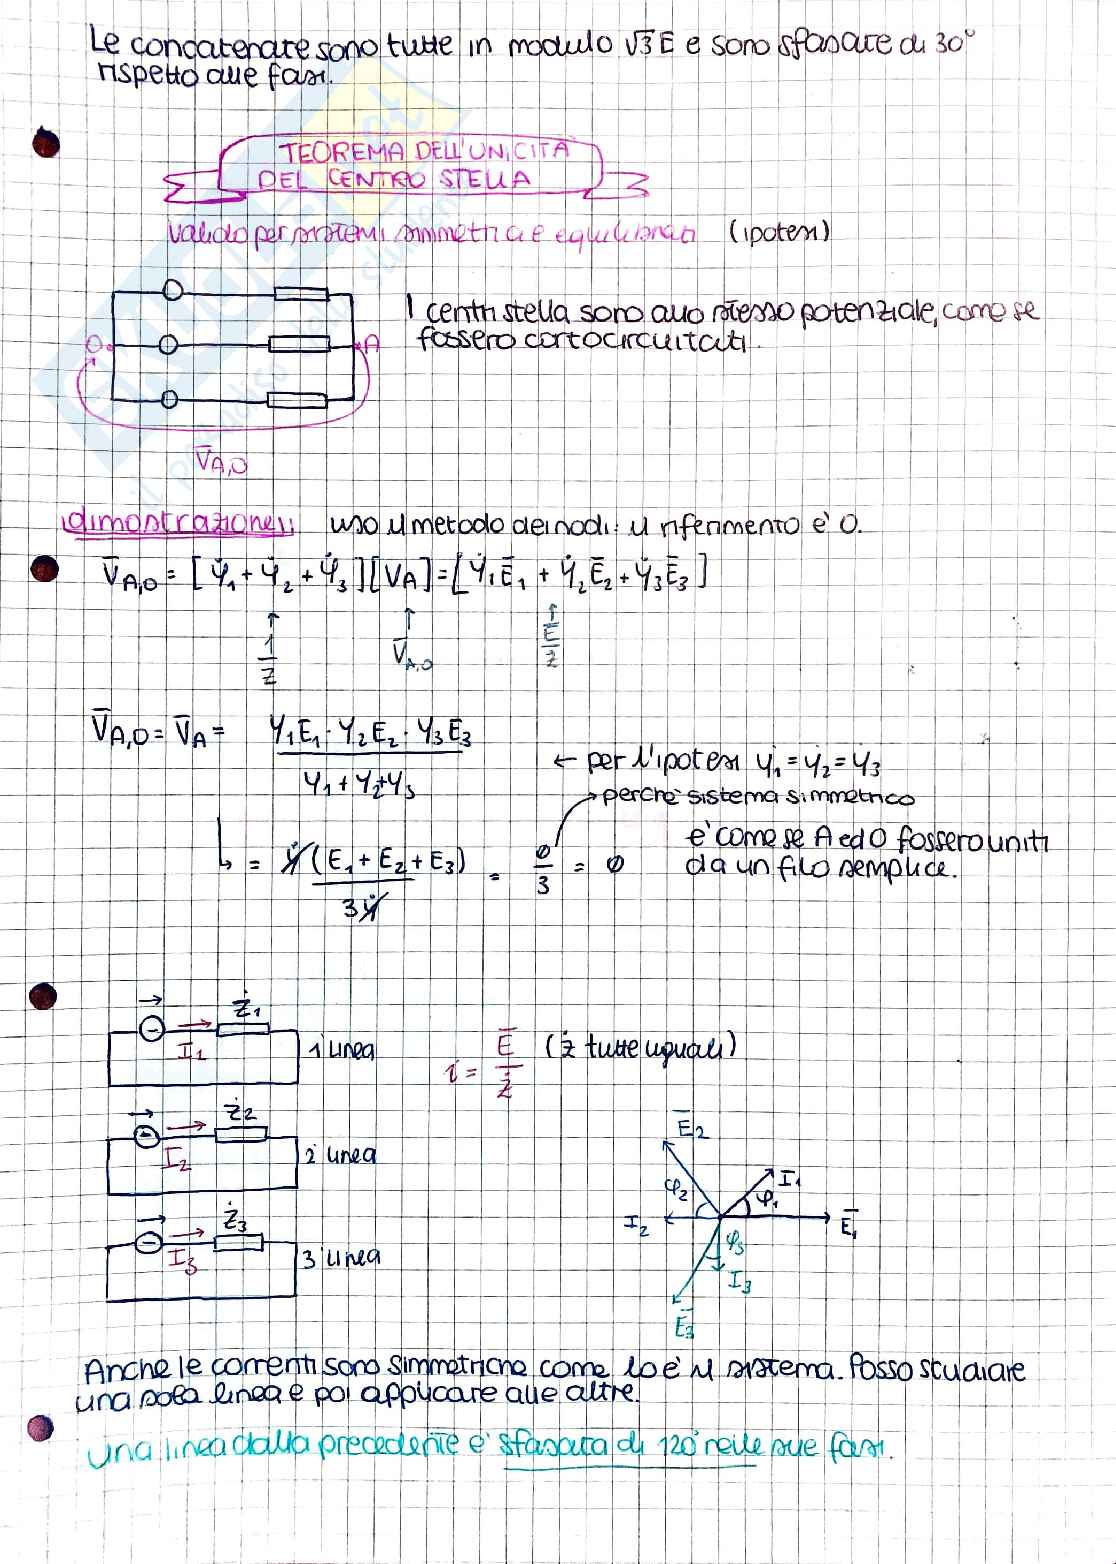 Le concatenate sono tutte in modulo √3 E e sono sfasate di 30°
rispetto alle fasi.
TEOREMA DELL'UNICITÀ
DEL CENTRO STELLA
valido per sistemi simmetrici e equilibrati (ipotesi)
I centri stella sono allo stesso potenziale, come se
fossero cortocircuitati.
O A
V̄A,O
dimostrazione: uso il metodo dei nodi: il riferimento è O.
V̄A,O = [Ẏ1 + Ẏ2 + Ẏ3][VA] = [Ẏ1Ē1 + Ẏ2Ē2 + Ẏ3Ē3]
↑ ↑ ↑
1/Z V̄A,O E/Z
V̄A,O = V̄A = Y1E1 · Y2E2 · Y3E3 / Y1 + Y2 + Y3
← per l'ipotesi Ẏ1 = Ẏ2 = Ẏ3
→ perché sistema simmetrico
↳ = Ẏ(E1 + E2 + E3) / 3Ẏ = 0/3 = 0
è come se A ed O fossero uniti
da un filo semplice.
Ż1
I1
1 linea
i = Ē/Ż (ż tutte uguali)
Ż2
I2
2 linea
Ż3
I3
3 linea
Ē2
φ2 I1
φ1
I2 Ē1
φ3
I3
Ē3
Anche le correnti sono simmetriche come lo è il sistema. Posso studiare
una sola linea e poi applicare alle altre.
una linea dalla precedente è sfasata di 120° nelle sue fasi.